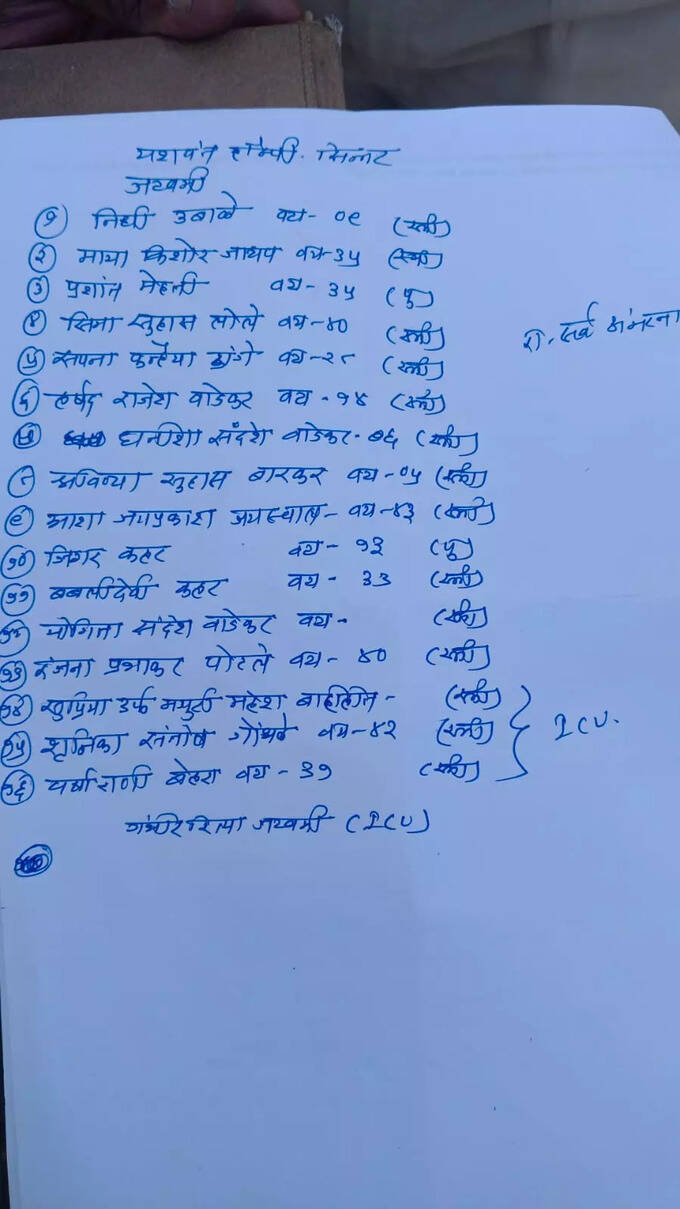 यशवंत हॉस्पी. सिन्नर
जखमी
१ निधी उबाळे वय - ०९ (स्त्री)
२ माया किशोर जाधव वय - ३५ (स्त्री)
३ प्रशांत मेहती वय - ३५ (पु)
४ सिमा सुहास लोले वय - ४० (स्त्री)
५ सपना कन्हैया डांगे वय - २८ (स्त्री)
रा. सर्व
६ हर्षद राजेश वाडेकर वय - १४ (स्त्री)
७ धनिशा संदेश वाडेकर - ०६ (स्त्री)
८ सुहास बारकर वय - ०५ (स्त्री)
९ आशा जयप्रकाश जयस्वाल - वय - ४३ (स्त्री)
१० जिगर कहर वय - १३ (पु)
११ बबलीदेवी कहर वय - ३३ (स्त्री)
१२ योगिता संदेश वाडेकर वय - (स्त्री)
१३ रंजना प्रभाकर पोटले वय - ४० (स्त्री)
१४ सुप्रिया उर्फ मयुरी महेश - (स्त्री)
१५ संतोष वय - ४२ (स्त्री) ICU.
१६ वर्षाराणी बेहरा वय - ३१ (स्त्री)
गंभीररित्या जखमी (ICU)